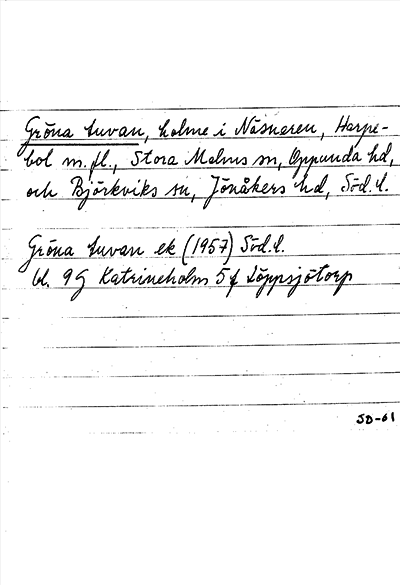 Gröna tuvan, holme i Näsnaren, Harpe-
bol m.fl., Stora Malms sn, Oppunda hd,
och Björkviks sn, Jönåkers hd, Söd.l.
Gröna tuvan ek (1957) Söd.l.
bl. 9G Katrineholm 5f Löppsjötorp
SD-61